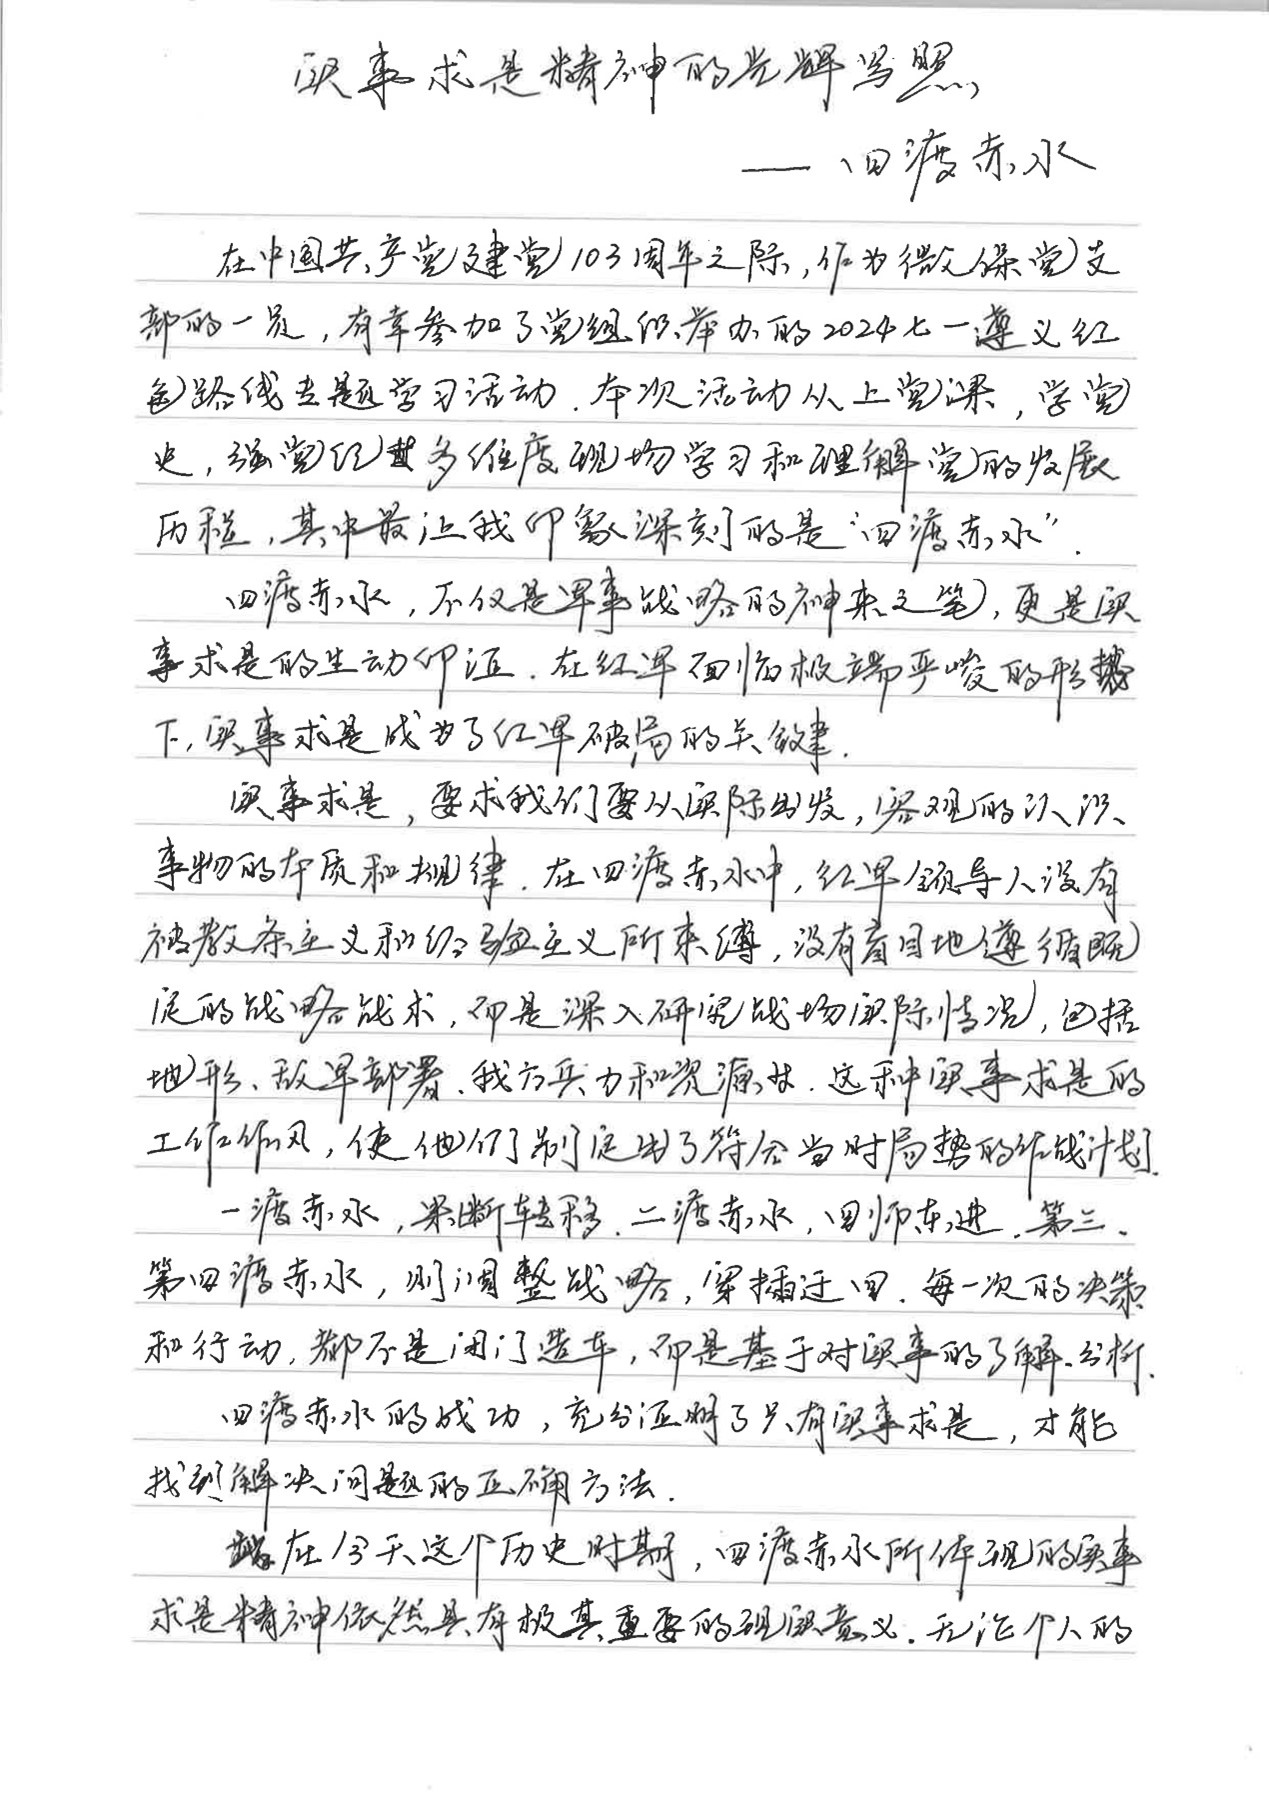 实事求是精神的光辉写照
——四渡赤水
在中国共产党建党103周年之际,作为微保党支
部的一员,有幸参加了党组织举办的2024七一遵义红
色路线专题学习活动.本次活动从上党课,学党
史,强党性多维度现场学习和理解党的发展
历程,其中最让我印象深刻的是“四渡赤水”.
四渡赤水,不仅是军事战略的神来之笔,更是实
事求是的生动印证.在红军面临极端严峻的形势
下,实事求是成为了红军破局的关键.
实事求是,要求我们要从实际出发,客观的认识
事物的本质和规律.在四渡赤水中,红军领导人没有
被教条主义和经验主义所束缚,没有盲目地遵循既
定的战略战术,而是深入研究战场实际情况,包括
地形、敌军部署、我方兵力和资源等.这种实事求是的
工作作风,使他们制定出了符合当时局势的作战计划.
一渡赤水,果断转移.二渡赤水,回师东进.第三、
第四渡赤水,则调整战略,穿插迂回.每一次的决策
和行动,都不是闭门造车,而是基于对实事的了解、分析.
四渡赤水的成功,充分证明了只有实事求是,才能
找到解决问题的正确方法.
在今天这个历史时期,四渡赤水所体现的实事
求是精神依然具有极其重要的现实意义.无论个人的